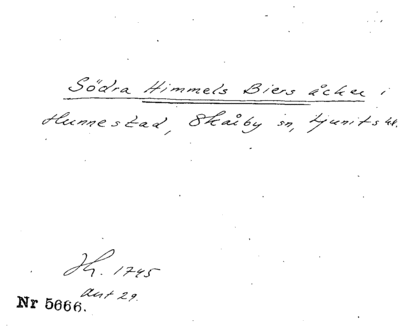 Södra Himmels Biers åcker i
Hunnestad, Skårby sn, Ljunits hd.
Jh. 1745
Akt 29.
Nr 5666.